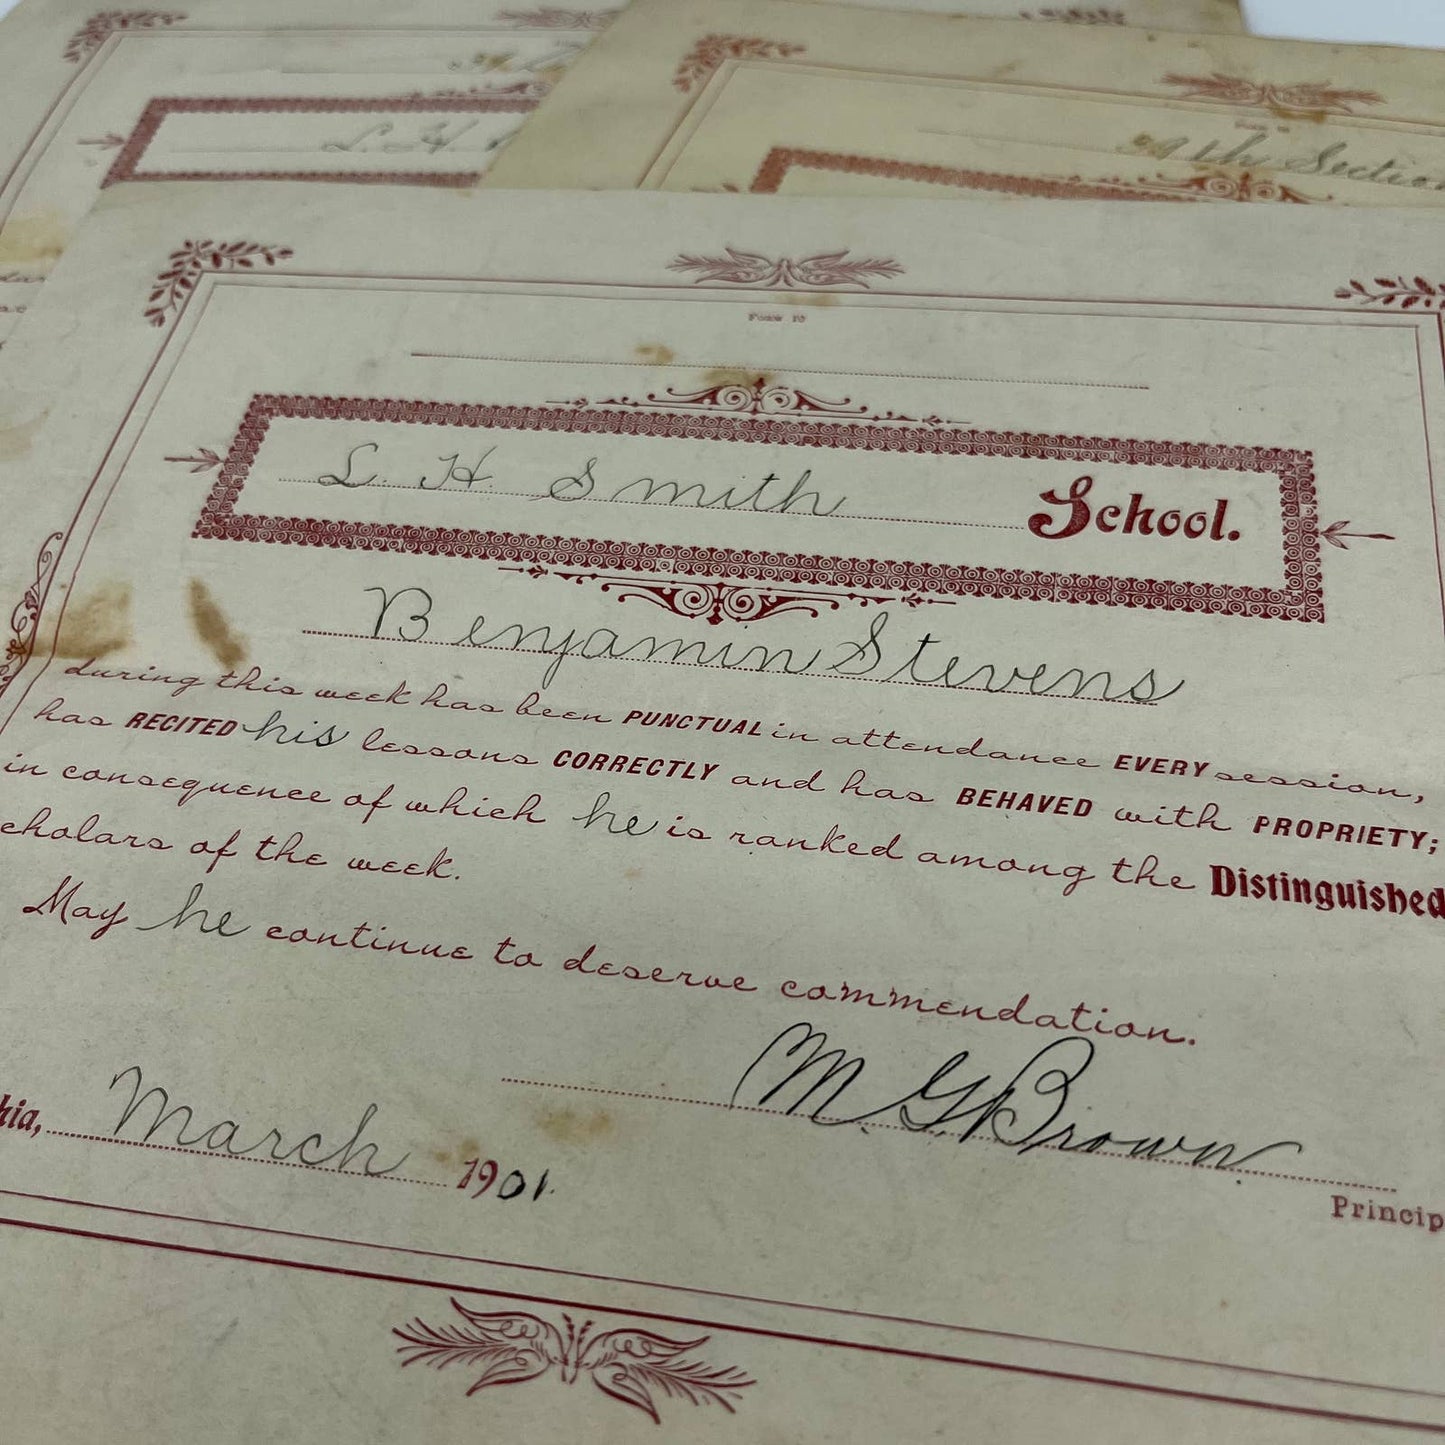 L. H.
29th Section
Form 10
L. H. Smith School.
Benjamin Stevens
during this week has been PUNCTUAL in attendance EVERY session,
has RECITED his lessons CORRECTLY and has BEHAVED with PROPRIETY;
in consequence of which he is ranked among the Distinguished
cholars of the week.
May he continue to deserve commendation.
M. G. Brown
hia, March 1901.
Princip